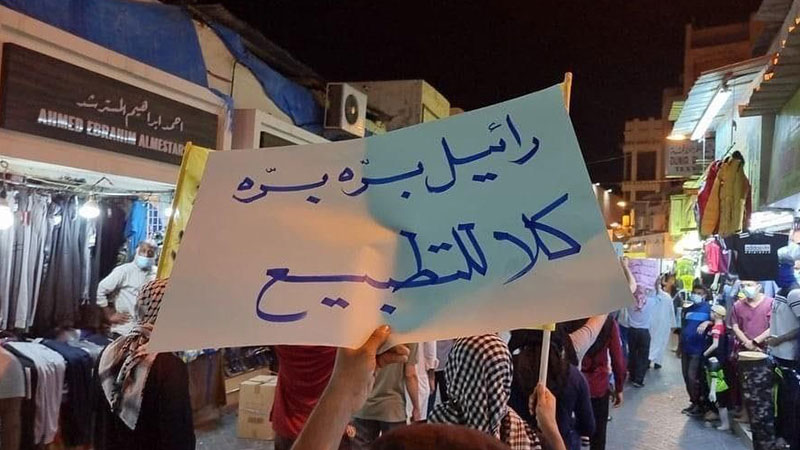 احمد ابراهيم المسترشد
AHMED EBRAHIM ALMESTAR
رائيل برّه برّه
كلا للتطبيع